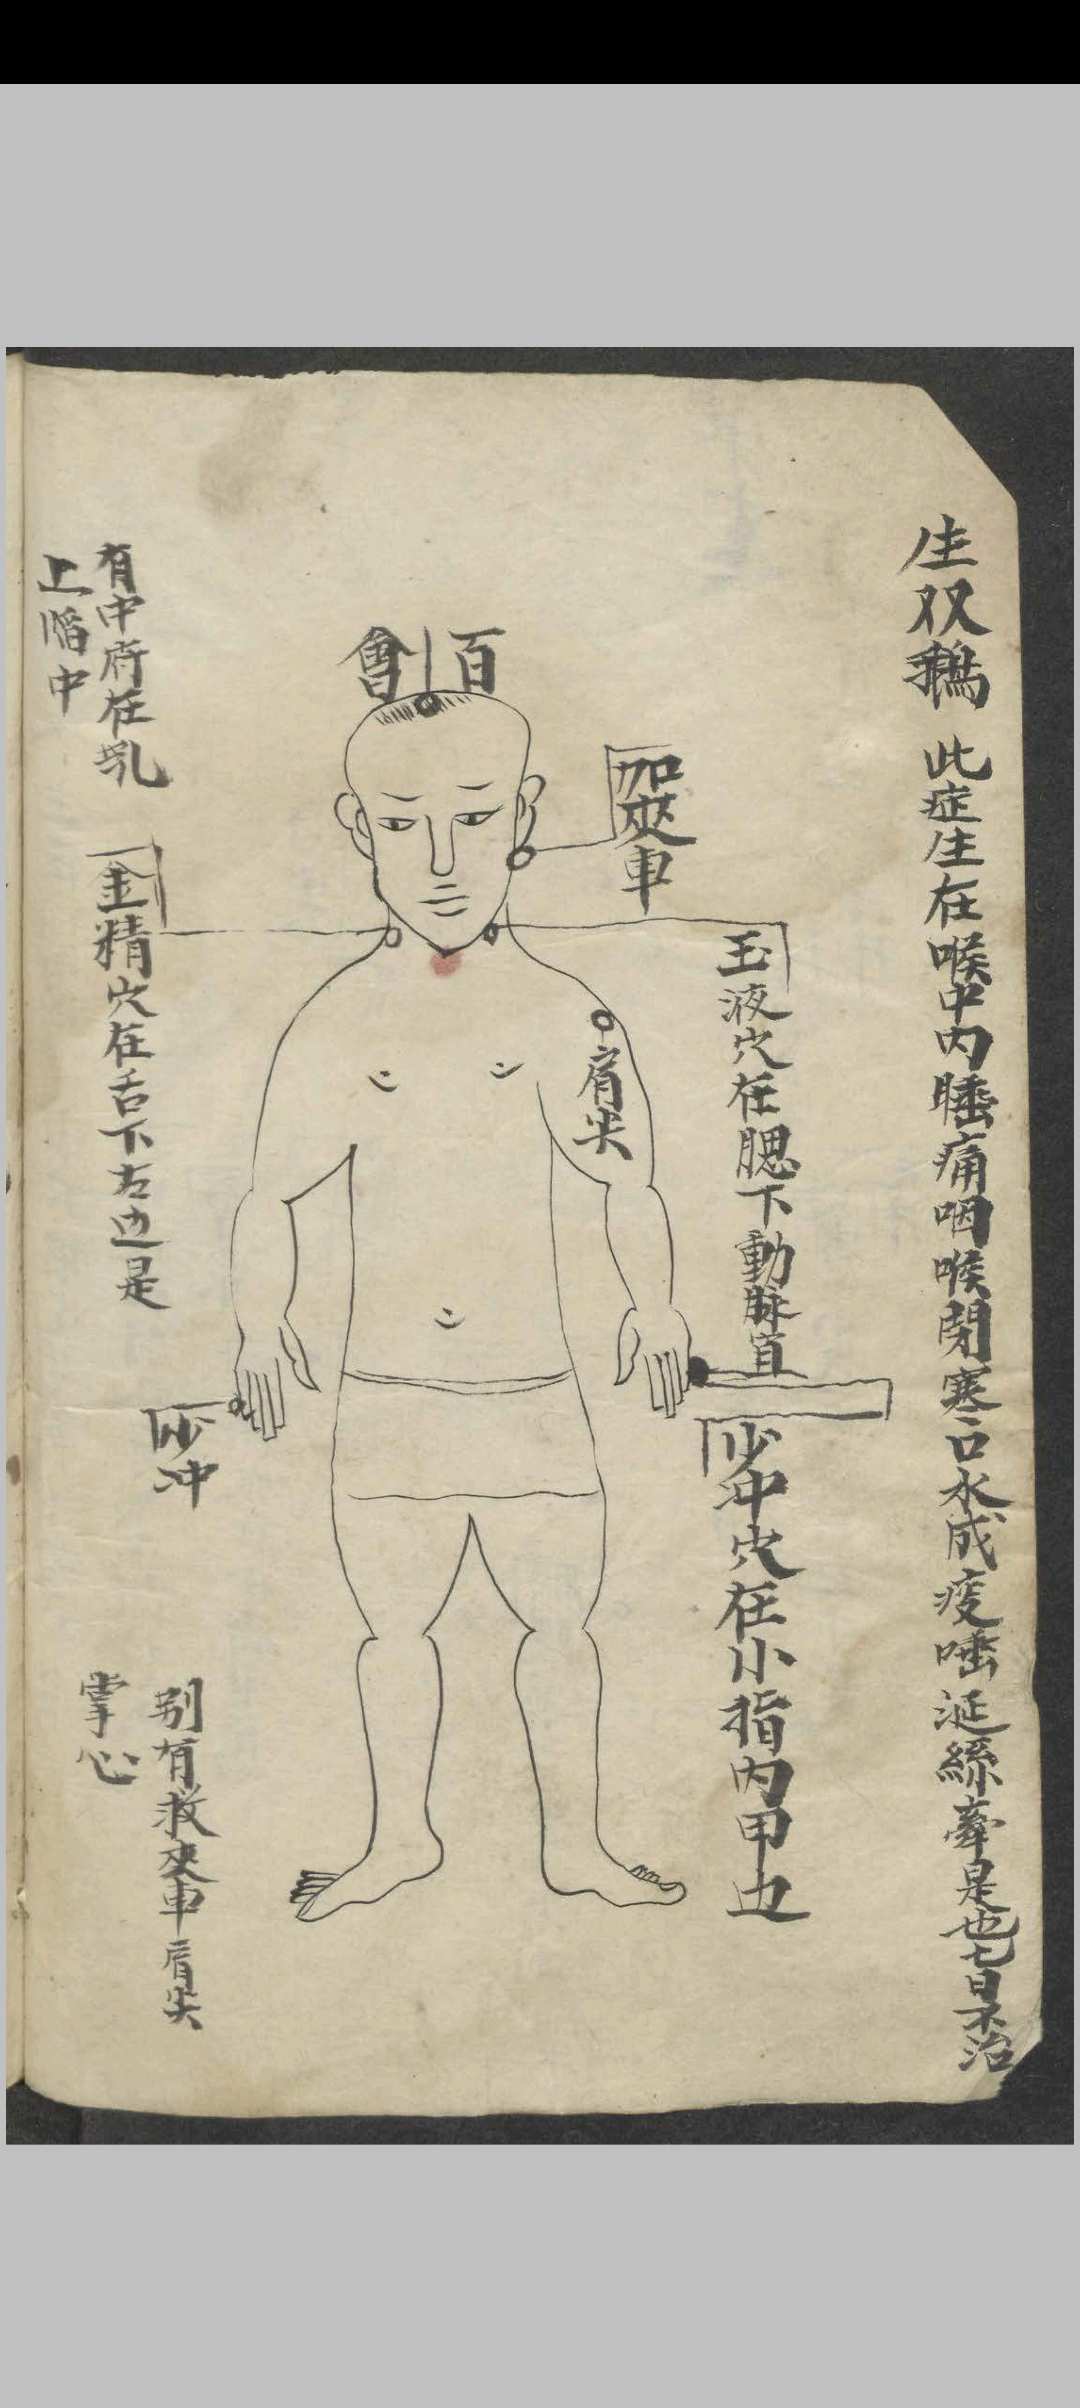 生双鵝 此症生在喉中内腄痛咽喉閉寒口水成痰唾涎絲牽是也七日不治
百會
加夾車
玉液穴在腮下動脉直
肩尖
少冲穴在小指内甲边
有中府在乳
上陷中
金精穴在舌下左边是
少冲
别有救夾車肩尖
掌心